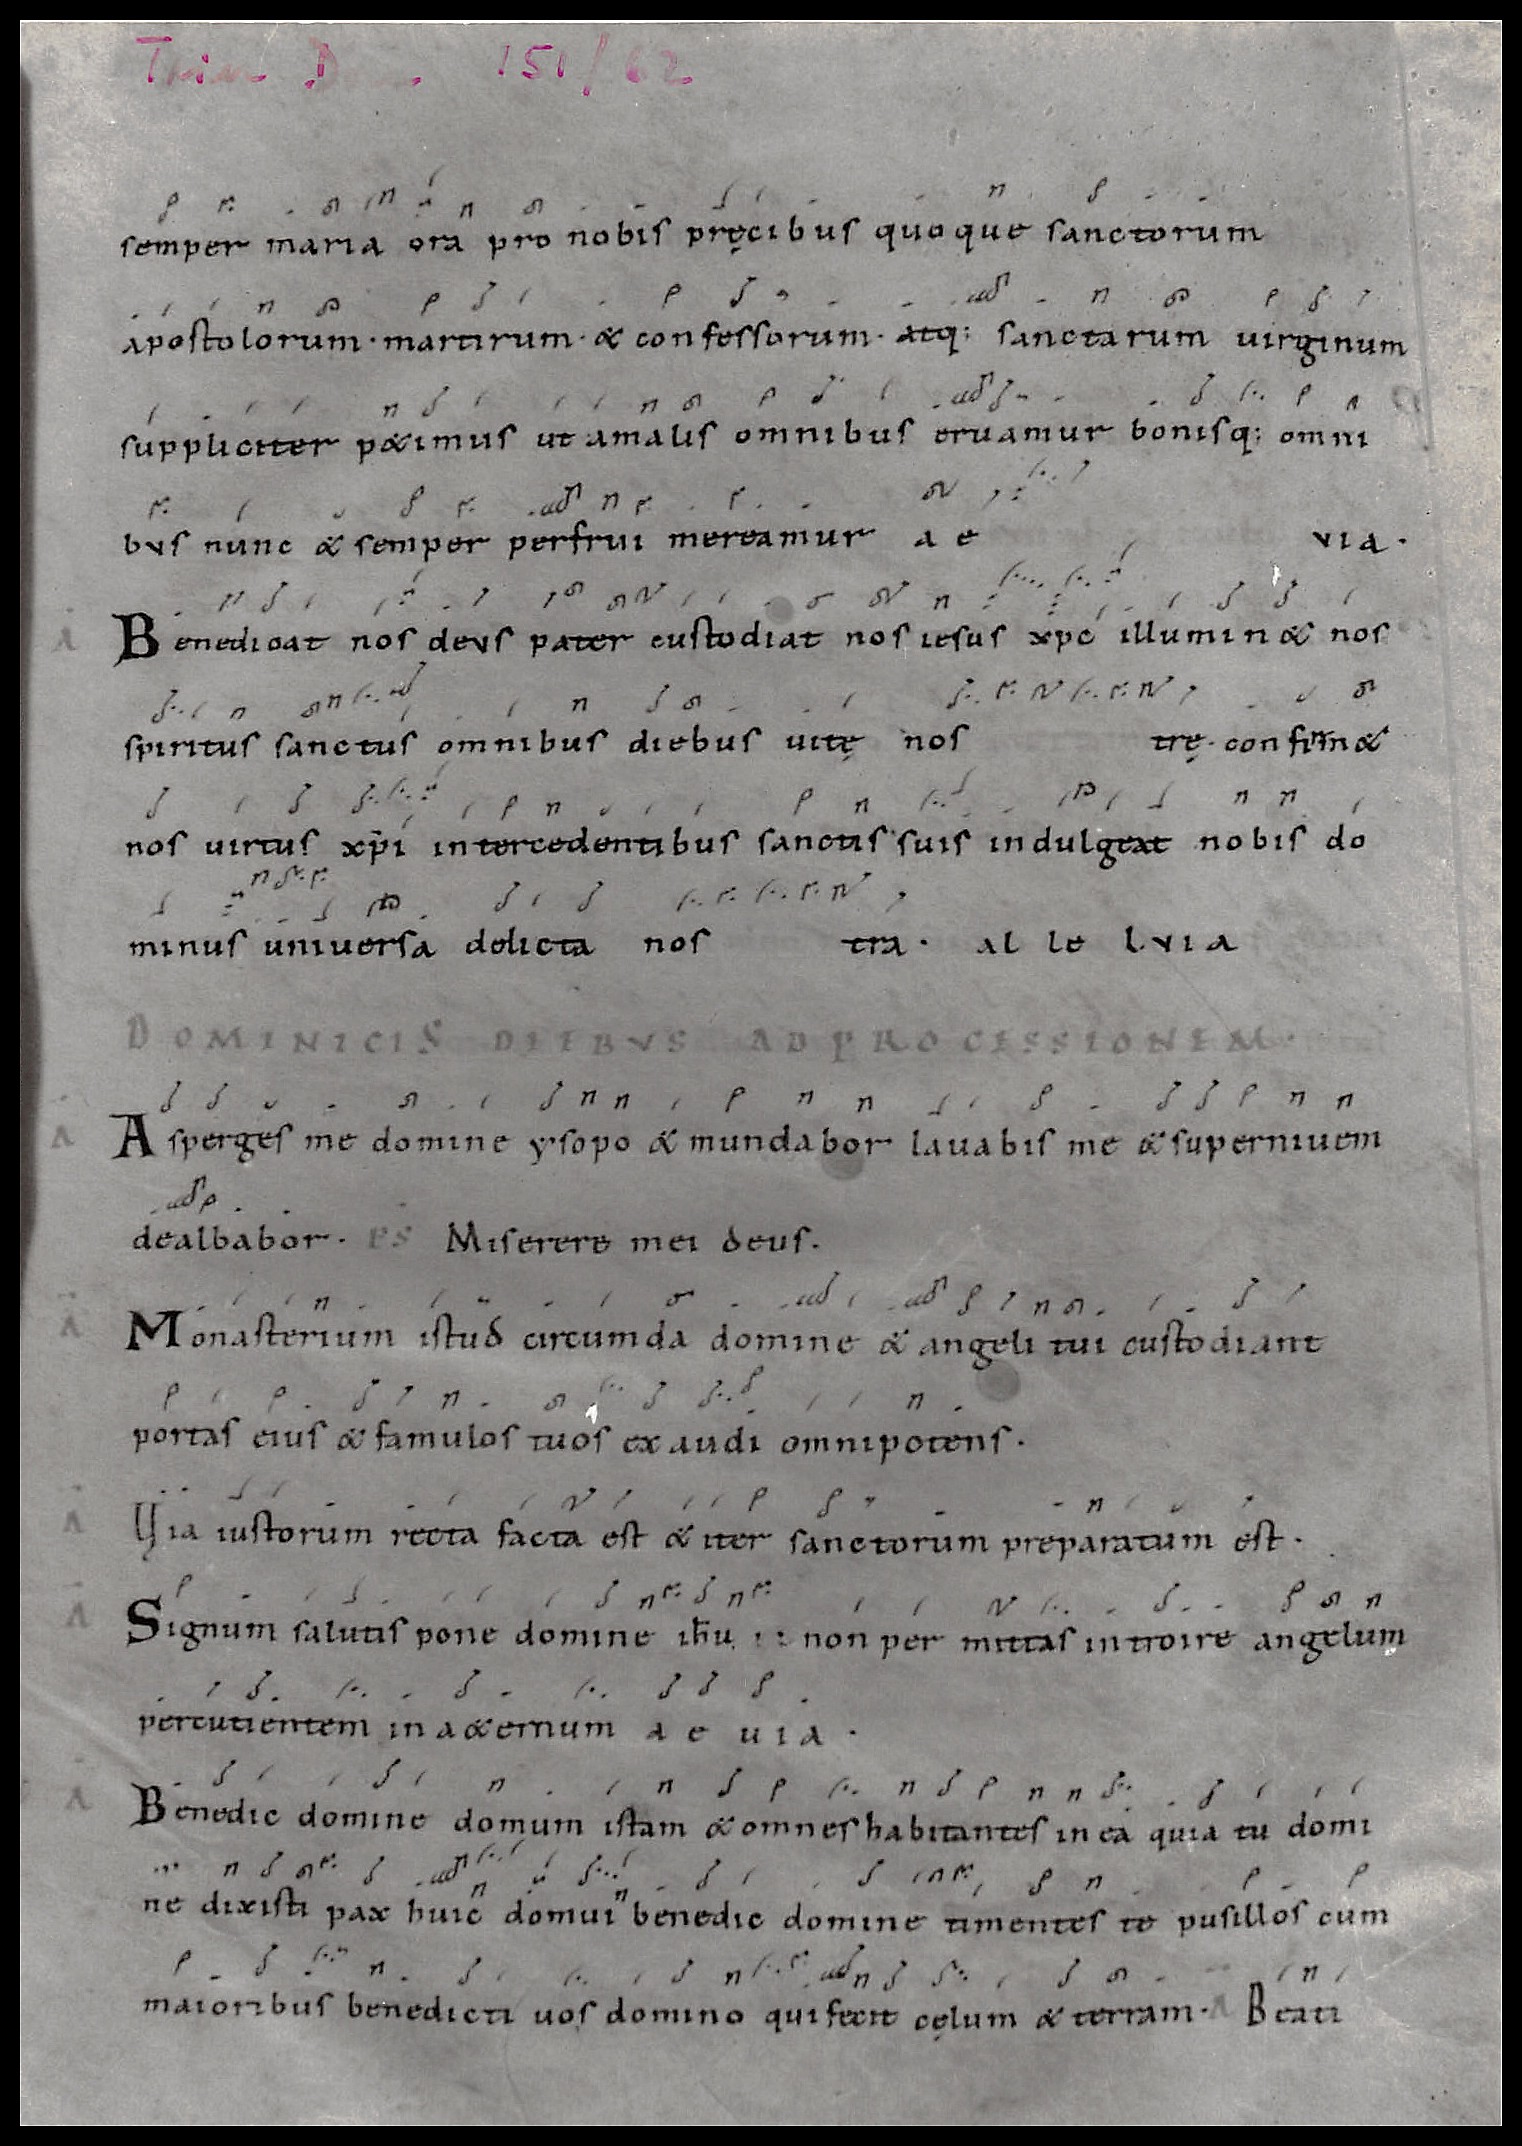 151/62
semper maria ora pro nobis pręcibus quoque sanctorum
apostolorum · martirum · & confessorum · atq; sanctarum virginum
suppliciter p&imus ut amalis omnibus eruamur bonisq; omni
bus nunc & semper perfrui mereamur a e via ·
A Benedicat nos deus pater custodiat nos iesus xpc illumin& nos
spiritus sanctus omnibus diebus uitę nos trę · confirm&
nos virtus xp̄i intercedentibus sanctis suis indulgeat nobis do
minus uniuersa delicta nos tra · al le luia
DOMINICIS DIEBVS AD PROCESSIONEM ·
A Asperges me domine ysopo & mundabor lauabis me & super niuem
dealbabor · PS Miserere mei deus .
A Monasterium istud circumda domine & angeli tui custodiant
portas eius & famulos tuos exaudi omnipotens ·
A Uia iustorum recta facta est & iter sanctorum preparatum est ·
A Signum salutis pone domine ih̄u non per mittas introire angelum
percutientem in a&ernum a e u i a ·
A Benedic domine domum istam & omnes habitantes in ea quia tu domi
ne dixisti pax huic domui benedic domine timentes te pusillos cum
maioribus benedicti uos domino qui fecit cęlum & terram · A Beati